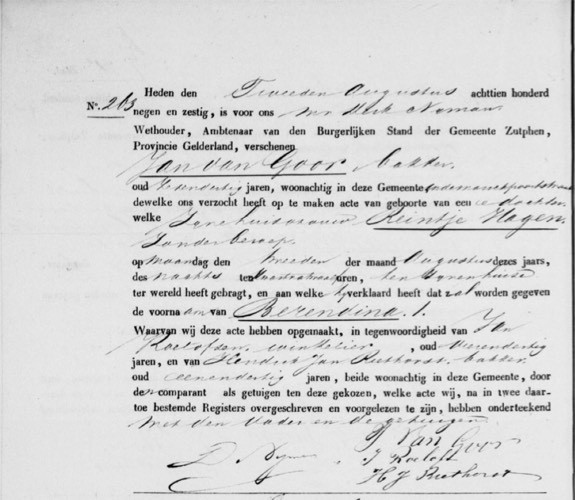 Heden den Tweeden Augustus achttien honderd
N°. 263 negen en zestig, is voor ons Mr Derk Noman
Wethouder, Ambtenaar van den Burgerlijken Stand der Gemeente Zutphen,
Provincie Gelderland, verschenen
Jan van Goor, bakker.
oud jaren, woonachtig in deze Gemeente
dewelke ons verzocht heeft op te maken acte van geboorte van eene dochter
welke Zyne huisvrouw Reintje Hagen.
Zonder beroep.
op Maandag den tweeden der maand Augustus dezes jaars,
des nachts ten uren, ten Zynen huize
ter wereld heeft gebragt, en aan welke hy verklaard heeft dat zal worden gegeven
de voornaam van Berendina 1.
Waarvan wij deze acte hebben opgemaakt, in tegenwoordigheid van Jan
Roelofsen, winkelier, oud
jaren, en van Hendrik Jan Riethorst bakker
oud eenendertig jaren, beide woonachtig in deze Gemeente, door
den comparant als getuigen ten deze gekozen, welke acte wij, na in twee daar-
toe bestemde Registers overgeschreven en voorgelezen te zijn, hebben onderteekend
met den Vader en de getuigen.
J Van Goor
D Noman J Roelofs
H J Riethorst